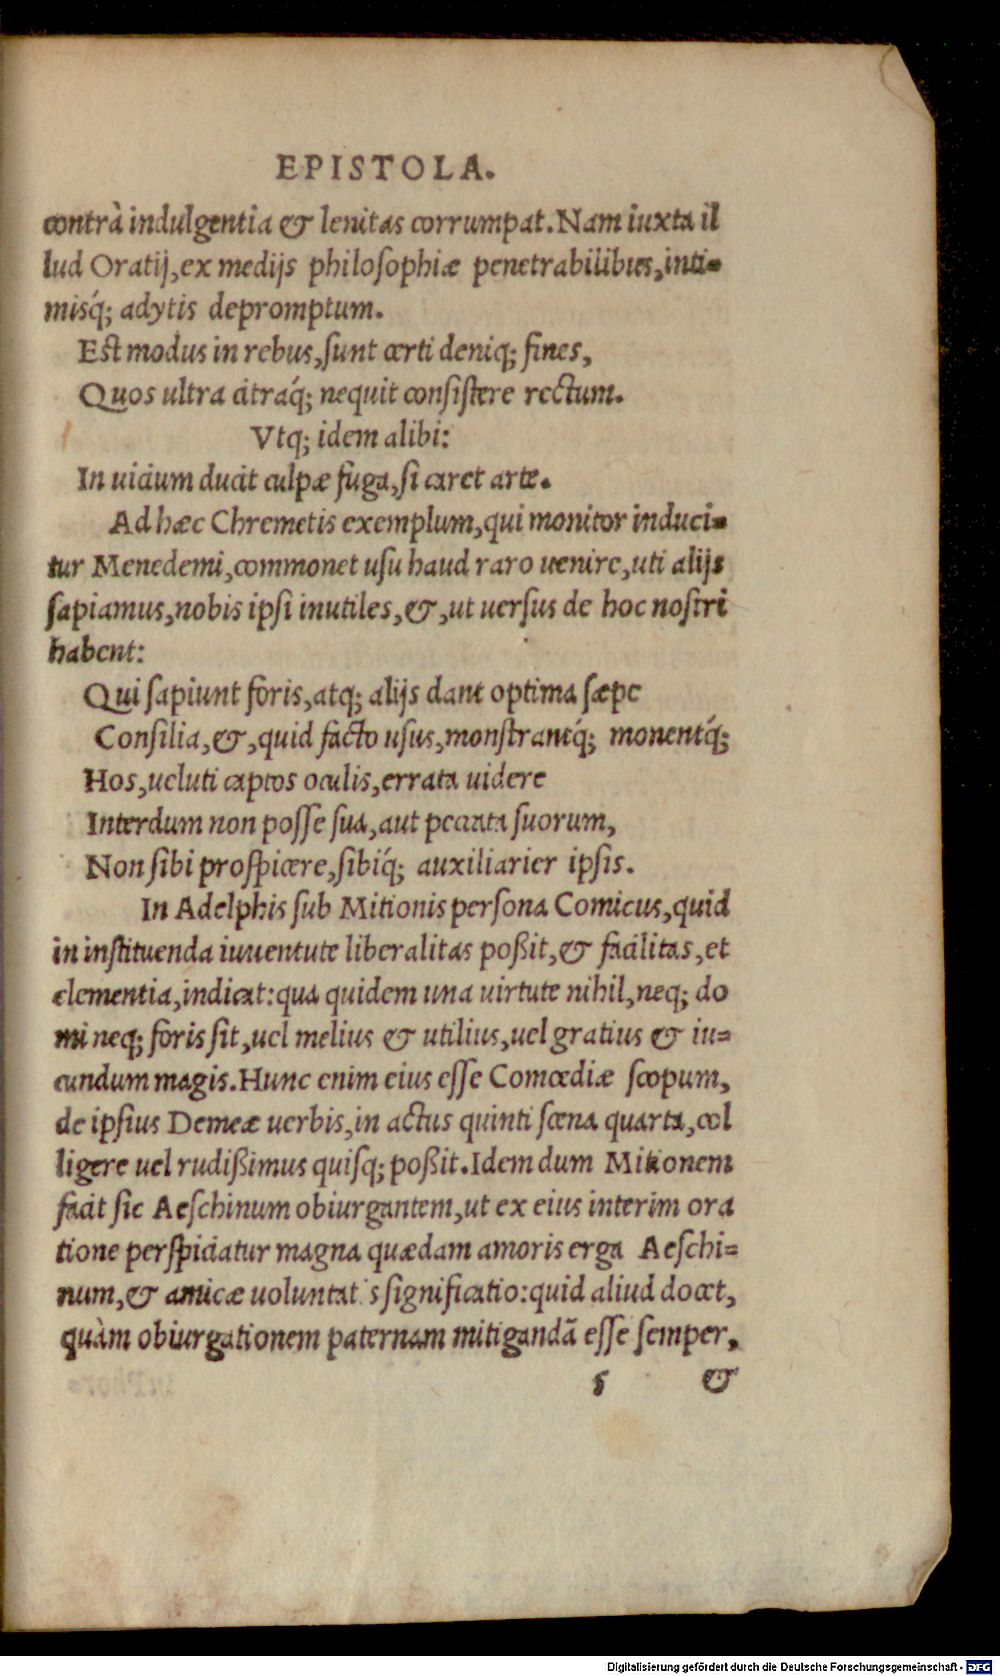 EPISTOLA.
contrà indulgentia & lenitas corrumpat. Nam iuxta il
lud Oratij, ex medijs philosophiæ penetrabilibus, inti=
misq́; adytis depromptum.
Est modus in rebus, sunt certi deniq; fines,
Quos ultra citraq́; nequit consistere rectum.
Vtq; idem alibi:
In uicium ducit culpæ fuga, si caret arte.
Ad hæc Chremetis exemplum, qui monitor induci=
tur Menedemi, commonet usu haud raro uenire, uti alijs
sapiamus, nobis ipsi inutiles, &, ut uersus de hoc nostri
habent:
Qui sapiunt foris, atq; alijs dant optima sæpe
Consilia, &, quid facto usus, monstrantq́; monentq́;
Hos, ueluti captos oculis, errata uidere
Interdum non posse sua, aut peccata suorum,
Non sibi prospicere, sibiq́; auxiliarier ipsis.
In Adelphis sub Mitionis persona Comicus, quid
in instituenda iuuentute liberalitas poßit, & facilitas, et
clementia, indicat: qua quidem una uirtute nihil, neq; do
mi neq; foris sit, uel melius & utilius, uel gratius & iu=
cundum magis. Hunc enim eius esse Comœdiæ scopum,
de ipsius Demeæ uerbis, in actus quinti scena quarta, col
ligere uel rudißimus quisq; poßit. Idem dum Mitionem
facit sic Aeschinum obiurgantem, ut ex eius interim ora
tione perspiciatur magna quædam amoris erga Aeschi=
num, & amicæ uoluntat s significatio: quid aliud docet,
quàm obiurgationem paternam mitigandã esse semper,
&
Digitalisierung gefördert durch die Deutsche Forschungsgemeinschaft - DFG